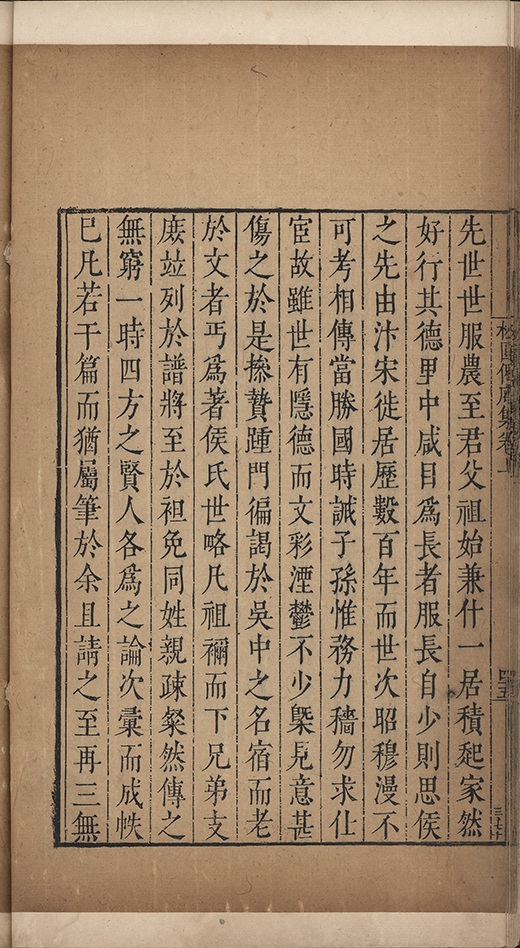 先世世服農至君父祖始兼什一居積起家然
好行其德里中咸目為長者服長自少則思侯
之先由汴宋徙居歷數百年而世次昭穆漫不
可考相傳當勝國時誡子孫惟務力穡勿求仕
宦故雖世有隱德而文彩湮鬱不少槩見意甚
傷之於是捺贄踵門徧謁於吳中之名宿而老
於文者丐爲著侯氏世略凡祖禰而下兄弟支
庻竝列於譜將至於袒免同姓親疎粲然傳之
無窮一時四方之賢人各爲之論次彙而成帙
已凡若干篇而猶屬筆於余且請之至再三無